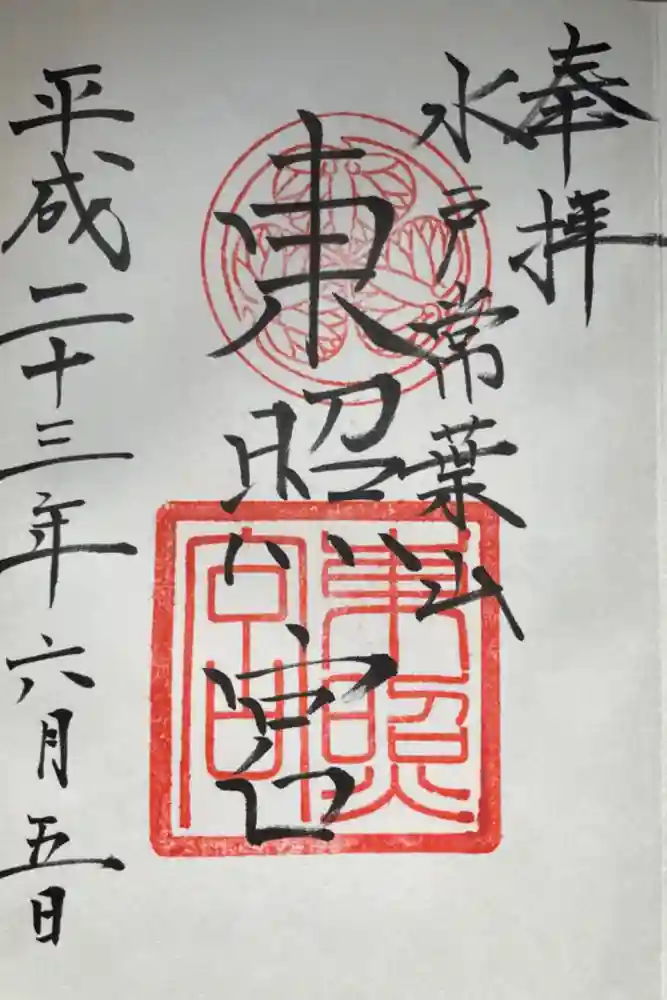 奉拝
水戸常葉山
東照宮
東照
宮印
平成二十三年六月五日